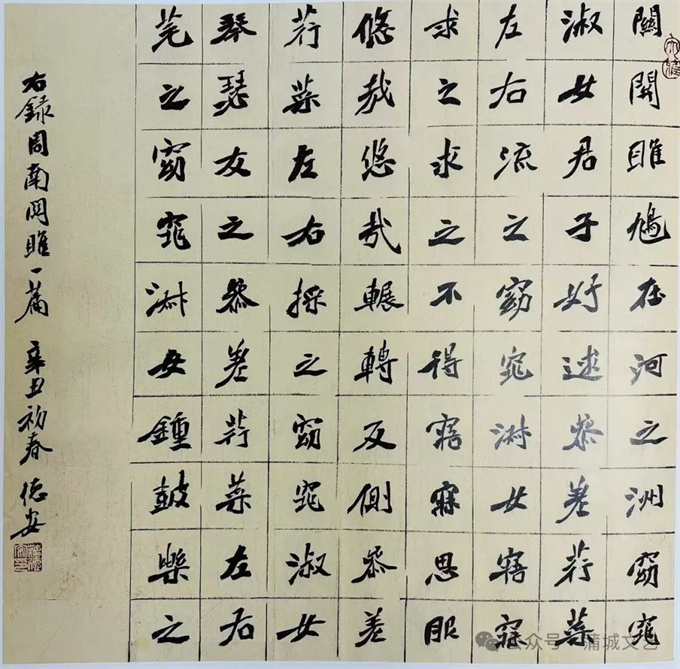 關關雎鳩在河之洲窈窕
淑女君子好逑參差荇菜
左右流之窈窕淑女寤寐
求之求之不得寤寐思服
悠哉悠哉輾轉反側參差
荇菜左右採之窈窕淑女
琴瑟友之參差荇菜左右
芼之窈窕淑女鍾鼓樂之
右錄周南関雎一篇 辛丑初春 德安
公众号 · 蒲城文艺